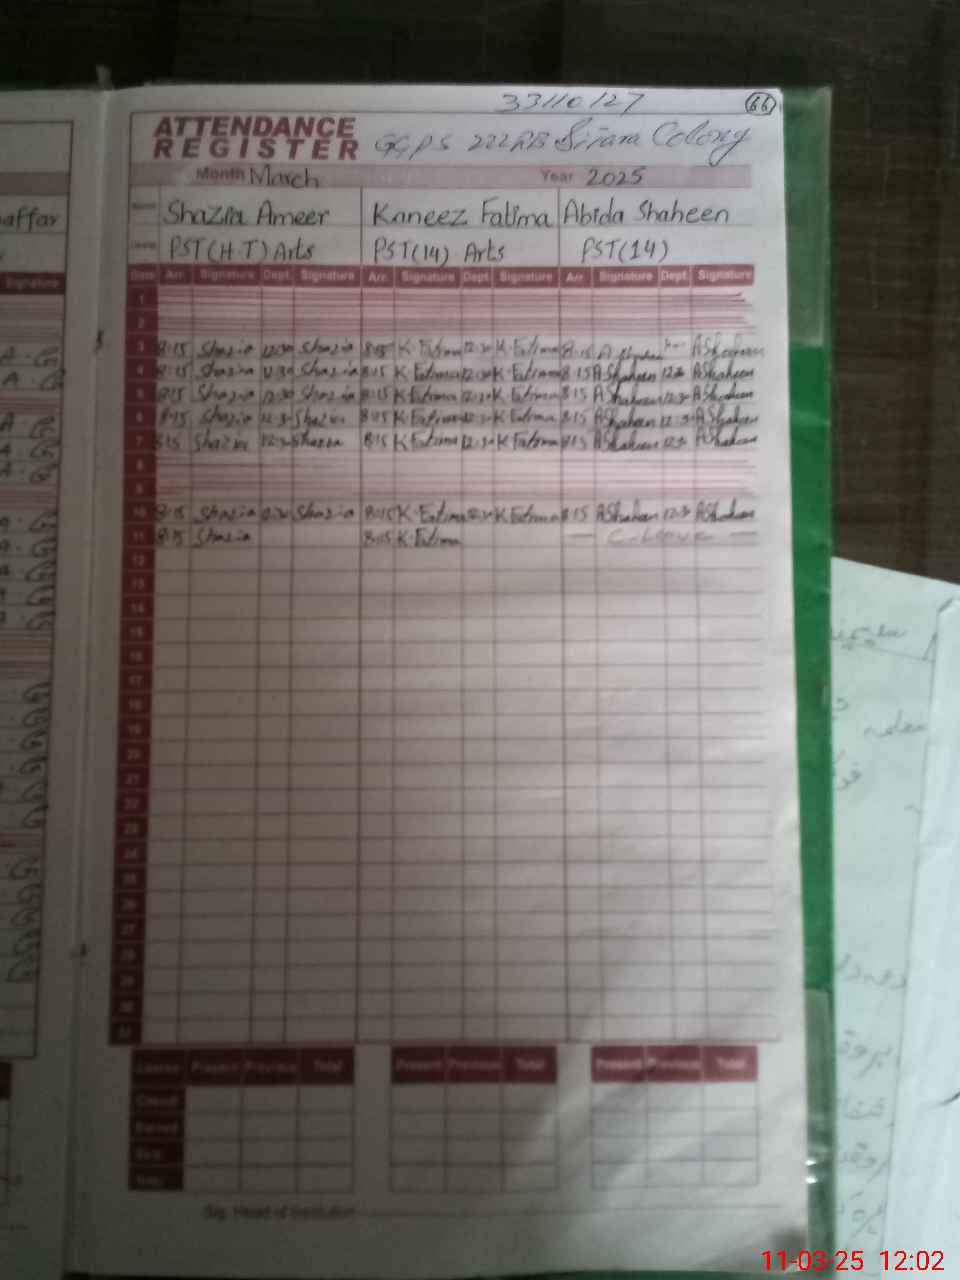 33110127 66
ATTENDANCE
REGISTER GGPS 222RB Sitara Colony
Month March Year 2025
affar Name Shazia Ameer Kaneez Fatima Abida Shaheen
PST(H.T) Arts PST(14) Arts PST(14)
Signature Date Arr. Signature Dept. Signature Arr. Signature Dept. Signature Arr. Signature Dept. Signature
1
2
3 8:15 Shazia 12:30 Shazia 8:15 K.Fatima 12:30 K.Fatima 8:15 A Shaheen AShaheen
4 8:15 Shazia 12:30 Shazia 8:15 K.Fatima 12:30 K.Fatima 8:15 AShaheen 12:30 AShaheen
5 8:15 Shazia 12:30 Shazia 8:15 K.Fatima 12:30 K.Fatima 8:15 AShaheen 12:30 AShaheen
6 8:15 Shazia 12:30 Shazia 8:15 K.Fatima 12:30 K.Fatima 8:15 AShaheen 12:30 AShaheen
7 8:15 Shazia 12:30 Shazia 8:15 K.Fatima 12:30 K.Fatima 8:15 AShaheen 12:30 AShaheen
8
9
10 8:15 Shazia 12:30 Shazia 8:15 K.Fatima 12:30 K.Fatima 8:15 AShaheen 12:30 AShaheen
11 8:15 Shazia 8:15 K.Fatima — C-Leave —
12
13
14
15
16
17
18
19
20
21
22
23
24
25
26
27
28
29
30
31
Leaves Present Previous Total Present Previous Total Present Previous Total
Casual
Earned
Sick
Total
Sig. Head of Institution
11-03-25 12:02